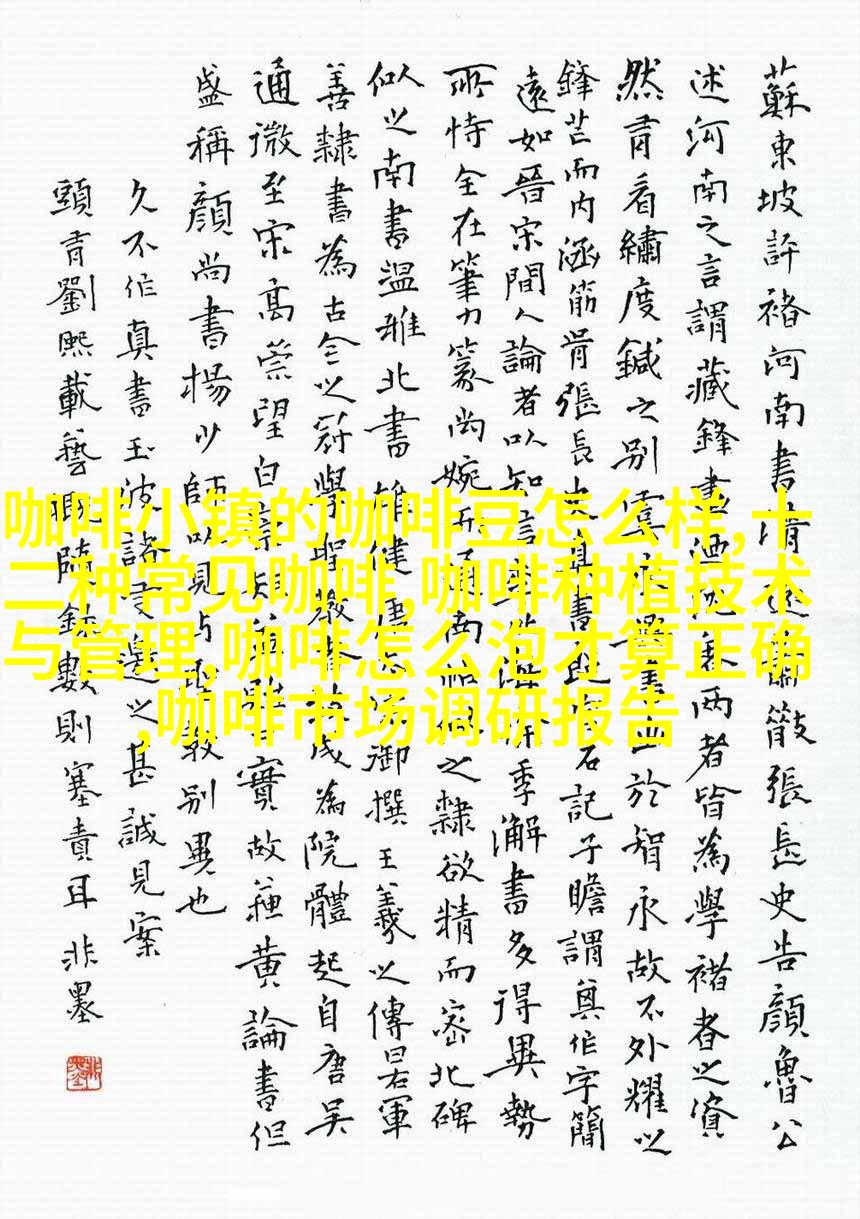 咖啡小镇的咖啡豆怎么样,十
二种常见咖啡,咖啡种植技术
与管理,咖啡怎么泡才算正确
,咖啡市场调研报告
蘇東坡評褚河南書清遠蕭散張長史告顏魯公
述河南之言謂藏鋒畫兩者皆為學褚者之資
然有看繡度鍼之別於智永故不外耀以
鋒芒而內涵筋骨張長史真書石記子瞻謂其作字簡
遠如晉宋間人論者以知言季瀚書多得異勢
所恃全在筆力篆尚婉而通南帖似之隸欲精而密北碑
似之南書溫雅北書雄健御撰王羲之傳曰右軍
善隸書為古今之冠學成為院體起自唐吳
通微至宋高望白實故蘇黃論書但
盛稱顏尚書楊少師以見與敢別異也
久不作真書玉波諸之甚誠見案
頭有劉熙載藝概隨錄數則塞責耳非墨